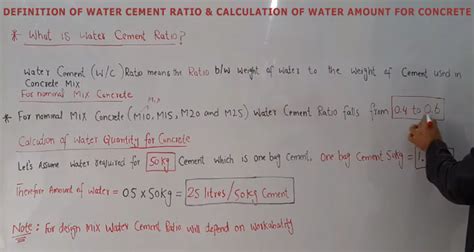 DEFINITION OF WATER CEMENT RATIO & CALCULATION OF WATER AMOUNT FOR CONCRETE
* What is Water Cement Ratio?
Water Cement (W/C) Ratio means the Ratio b/w weight of water to the weight of Cement used in
Concrete Mix
For nominal Mix Concrete
Mix
* For nominal Mix Concrete (M10, M15, M20 and M25) Water Cement Ratio falls from 0.4 to 0.6
Calculation of Water Quantity for Concrete
Let's Assume water required for 50kg Cement which is one bag cement, one bag Cement 50kg =
Therefore Amount of water = 0.5 X 50Kg = 25 litres/50kg Cement
Note: For design Mix Water Cement Ratio will depend on workability